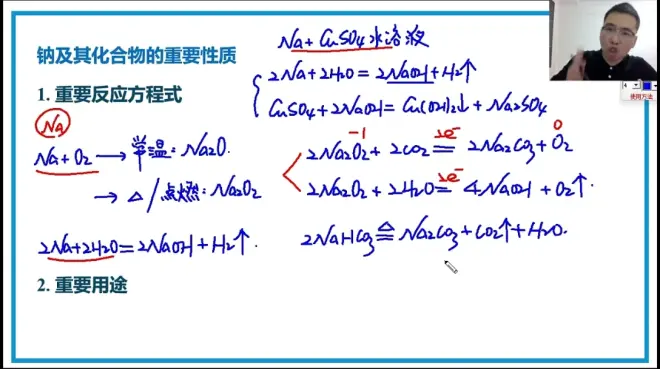 钠及其化合物的重要性质
1. 重要反应方程式
Na
Na+O2 → 常温：Na2O.
→ △/点燃：Na2O2
2Na+2H2O=2NaOH+H2↑.
2. 重要用途
Na+CuSO4水溶液
2Na+2H2O=2NaOH+H2↑
CuSO4+2NaOH=Cu(OH)2↓+Na2SO4
-1 2e⁻ 0
2Na2O2+2CO2=2Na2CO3+O2
2e⁻
2Na2O2+2H2O=4NaOH+O2↑.
△
2NaHCO3=Na2CO3+CO2↑+H2O.
使用方法